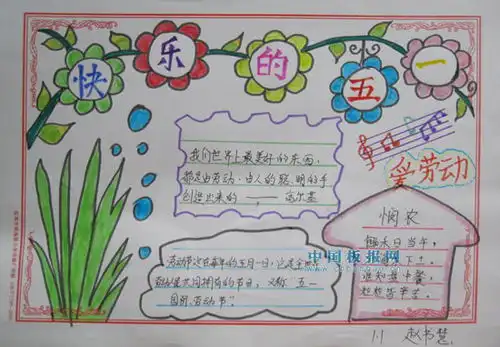 快乐的五一
我们世界上最美好的东西,
都是由劳动、由人的聪明的手
创造出来的,——高尔基
爱劳动
悯农
锄禾日当午,
谁知盘中餐,
粒粒皆辛苦。
劳动节定在每年的五月一日,它是全世界
劳动人民共同拥有的节日,又称五一
国际劳动节。
中国板报网
1.1 赵书慧